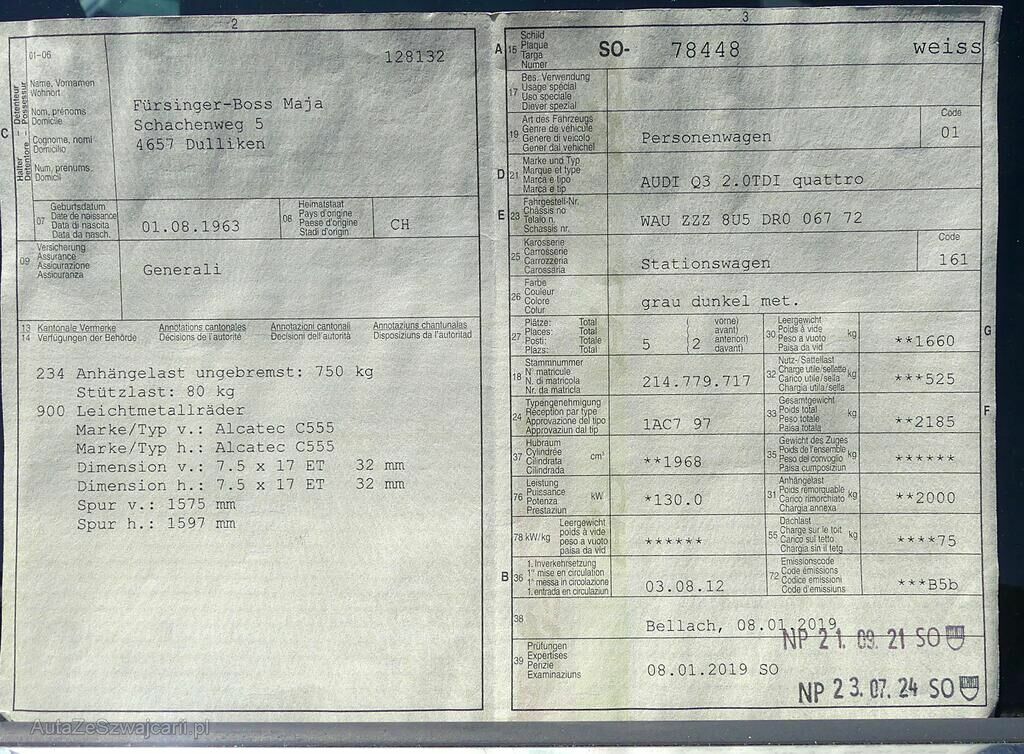 2
01-06
128132
Name, Vornamen
Wohnort
Nom, prénoms
Domicile
Cognome, nomi
Domicilio
Num, prenums
Domicil
C
Halter Detentore – Détenteur Possessur
Fürsinger-Boss Maja
Schachenweg 5
4657 Dulliken
07
Geburtsdatum
Date de naissance
Data di nascita
Data da nasch.
01.08.1963
08
Heimatstaat
Pays d'origine
Paese d'origine
Stadi d'origin
CH
09
Versicherung
Assurance
Assicurazione
Assicuranza
Generali
13 Kantonale Vermerke Annotations cantonales Annotazioni cantonali Annotaziuns chantunalas
14 Verfügungen der Behörde Décisions de l'autorité Decisioni dell'autorità Disposiziuns da l'autoritad
234 Anhängelast ungebremst: 750 kg
Stützlast: 80 kg
900 Leichtmetallräder
Marke/Typ v.: Alcatec C555
Marke/Typ h.: Alcatec C555
Dimension v.: 7.5 x 17 ET 32 mm
Dimension h.: 7.5 x 17 ET 32 mm
Spur v.: 1575 mm
Spur h.: 1597 mm
3
A
15
Schild
Plaque
Targa
Numer
SO- 78448 weiss
17
Bes. Verwendung
Usage spécial
Uso speciale
Diever spezial
19
Art des Fahrzeugs
Genre de véhicule
Genere di veicolo
Gener dal vehichel
Personenwagen
Code
01
D
21
Marke und Typ
Marque et type
Marca e tipo
Marca e tip
AUDI Q3 2.0TDI quattro
E
23
Fahrgestell-Nr.
Châssis no
Telaio n.
Schassis nr.
WAU ZZZ 8U5 DR0 067 72
25
Karosserie
Carrosserie
Carrozzeria
Carossaria
Stationswagen
Code
161
26
Farbe
Couleur
Colore
Colur
grau dunkel met.
27
Plätze: Total
Places: Total
Posti: Totale
Plazs: Total
5
( vorne)
avant)
anteriori)
( davant)
2
30
Leergewicht
Poids à vide
Peso a vuoto
Paisa da vid
kg
**1660
G
18
Stammnummer
N° matricule
N. di matricola
Nr. da matricla
214.779.717
32
Nutz-/Sattellast
Charge utile/sellette
Carico utile/sella
Chargia utila/sella
kg
***525
24
Typengenehmigung
Réception par type
Approvazione del tipo
Approvaziun dal tip
1AC7 97
33
Gesamtgewicht
Poids total
Peso totale
Paisa totala
kg
**2185
F
37
Hubraum
Cylindrée
Cilindrata
Cilindrada
cm³
**1968
35
Gewicht des Zuges
Poids de l'ensemble
Peso del convoglio
Paisa cumposiziun
kg
******
76
Leistung
Puissance
Potenza
Prestaziun
kW
*130.0
31
Anhängelast
Poids remorquable
Carico rimorchiato
Chargia annexa
kg
**2000
78 kW/kg
Leergewicht
poids à vide
peso a vuoto
paisa da vid
******
55
Dachlast
Charge sur le toit
Carico sul tetto
Chargia sin il tetg
kg
****75
B
36
1. Inverkehrsetzung
1re mise en circulation
1a messa in circolazione
1. entrada en circulaziun
03.08.12
72
Emissionscode
Code émissions
Codice emissioni
Code d'emissiuns
***B5b
38
Bellach, 08.01.2019
NP 21. 09. 21 SO
39
Prüfungen
Expertises
Perizie
Examinaziuns
08.01.2019 SO
NP 23. 07. 24 SO
AutaZeSzwajcarii.pl